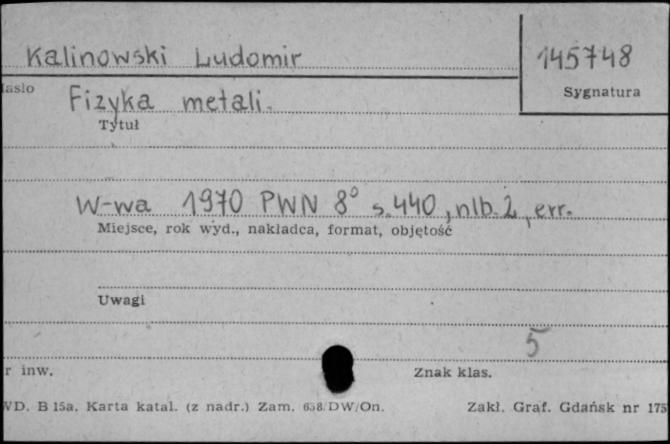 Kalinowski Ludomir
145748
Sygnatura
Fizyka metali.
Tytuł
W-wa 1970 PWN 8° s. 440, nlb. 2, err.
Miejsce, rok wyd., nakładca, format, objętość
Uwagi
5
r inw.
Znak klas.
WD. B 15a. Karta katal. (z nadr.) Zam. 658/DW/On.
Zakł. Graf. Gdańsk nr 175